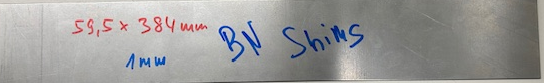 59,5 x 384 mm
1mm
BN Shims